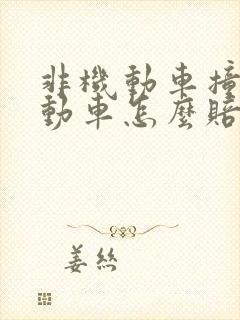 非機動車撞
動車怎麼賠
姜絲